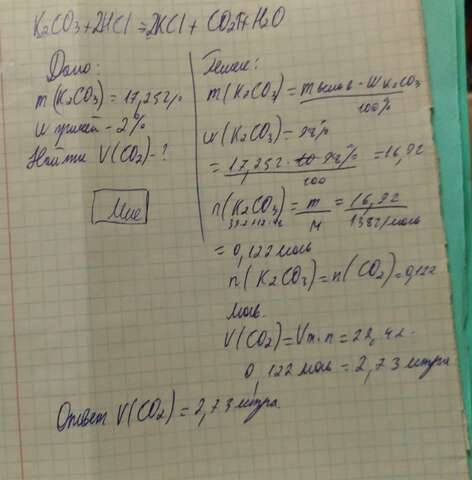 K2CO3+2HCl=2KCl+CO2↑+H2O
Дано:
m(K2CO3)=17,25г
w примесей - 2%
Найти V(CO2)-?
Мне
Решение:
m(K2CO3)=m · w K2CO3
100%
w(K2CO3)=98%
= 17,25г · 98% = 16,9г
100
n(K2CO3)= m = 16,9г
M 138г/моль
= 0,122 моль
n(K2CO3)=n(CO2)=0,122
моль.
V(CO2)=Vm·n=22,4л.
0,122 моль = 2,73 литра
Ответ V(CO2)=2,73 литра.